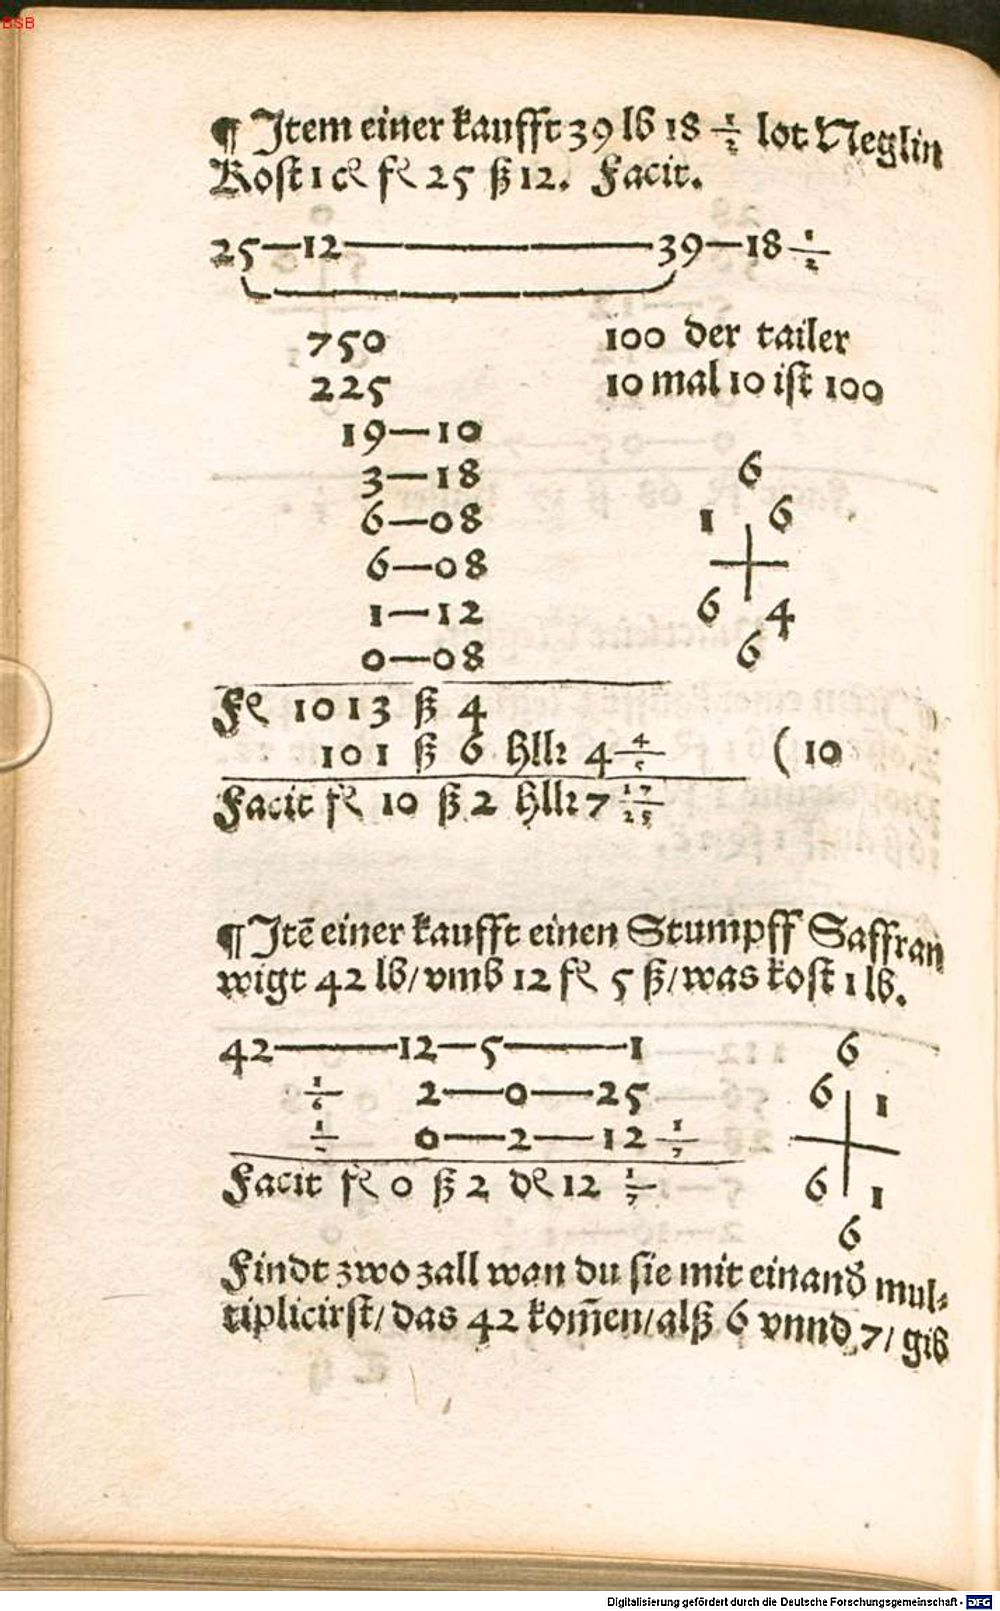 BSB
¶ Item einer kaufft 39 lb 18 1/2 lot Neglin
Kost 1 cl fl 25 ß 12. Facit.
25—12————39—18 1/2
750 100 der tailer
225 10 mal 10 ist 100
19—10
3—18 6
6—08 1 6
6—08
1—12 6 4
0—08 6
Fl 1013 ß 4
101 ß 6 hllr 4 4/5 (10
Facit fl 10 ß 2 hllr 7 17/25
¶ Itē einer kaufft einen Stumpff Saffran
wigt 42 lb/ vmb 12 fl 5 ß/ was kost 1 lb.
42———12—5———1 6
1/6 2—0—25 6 1
1/7 0—2—12 1/7
Facit fl 0 ß 2 dl 12 1/7 6 1
6
Findt zwo zall wan du sie mit einand mul⸗
tiplicirst/ das 42 kom̄en/ alß 6 vnnd 7/ gib
Digitalisierung gefördert durch die Deutsche Forschungsgemeinschaft - DFG